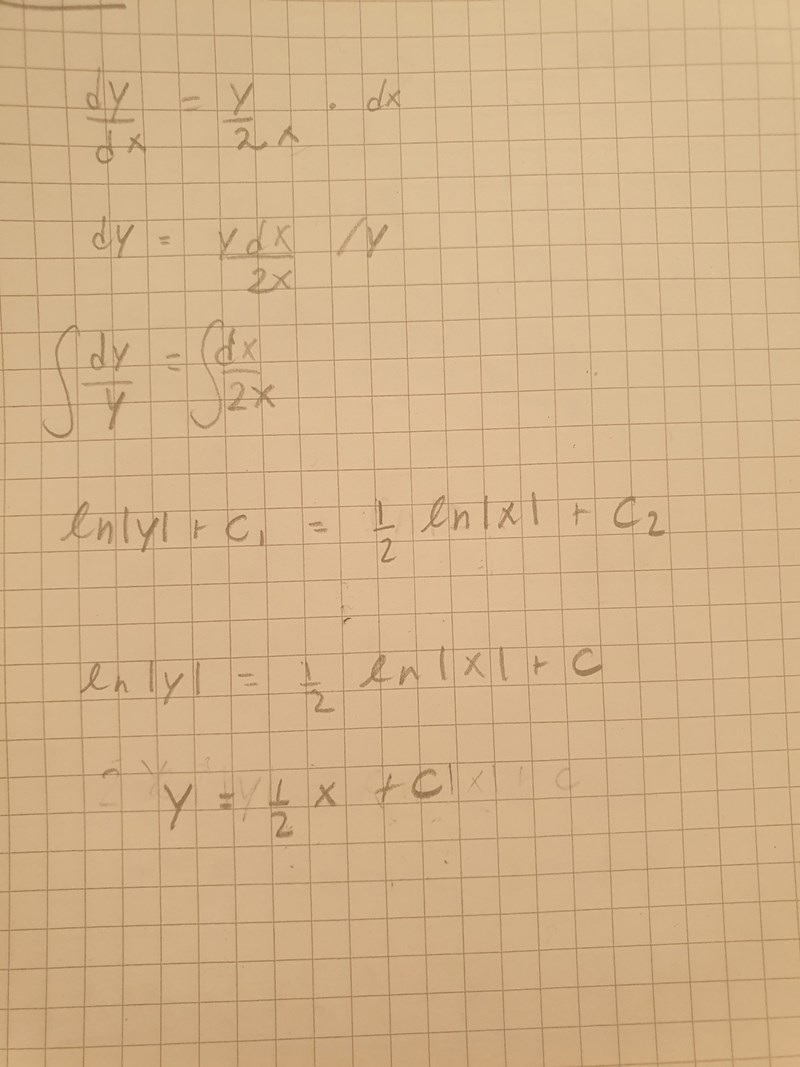 dy/dx = y/2x · dx
dy = y dx/2x /y
∫ dy/y = ∫ dx/2x
ln|y| + C₁ = 1/2 ln|x| + C₂
ln|y| = 1/2 ln|x| + C
y = 1/2 x + C